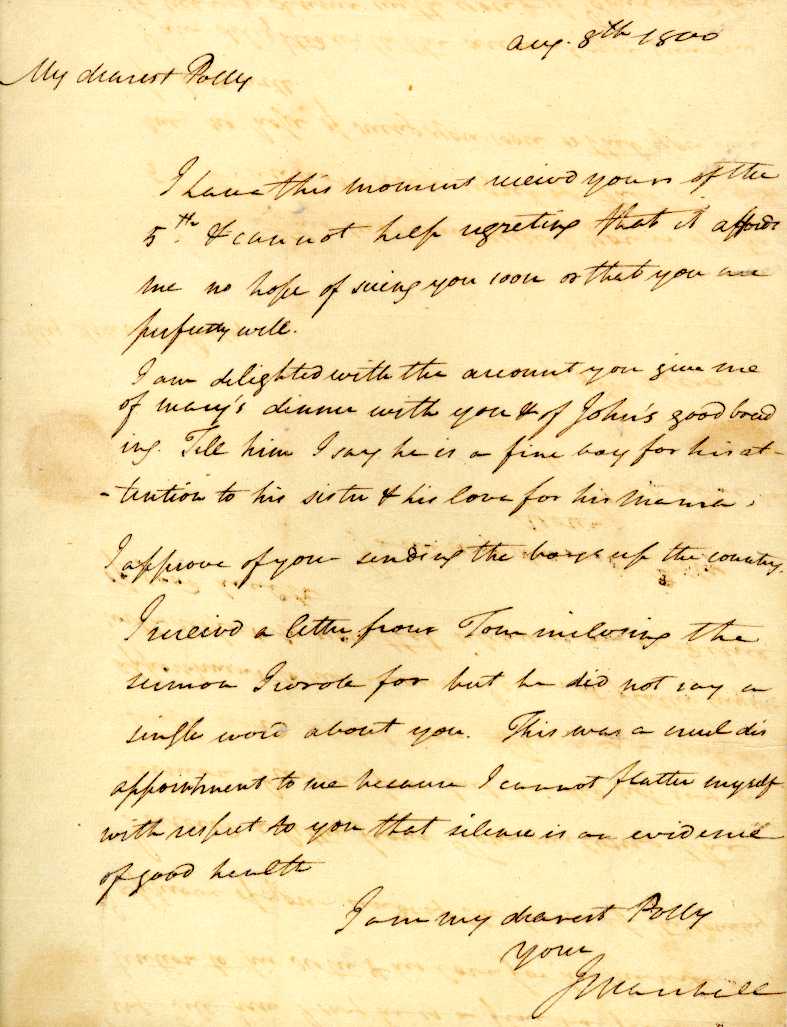 Aug. 8th 1800
My dearest Polly
I have this moment receivd yours of the
5th. & cannot help regreting that it affords
me no hope of seeing you soon or that you are
perfectly well.
I am delighted with the account you give me
of Mary's dinner with you & of John's good breed
ing. Tell him I say he is a fine boy for his at-
-tention to his sister & his love for his Mama.
I approve of your sending the boys up the country.
I receivd a letter from Tom inclosing the
sermon I wrote for but he did not say a
single word about you. This was a cruel dis
appointment to me because I cannot flatter myself
with respect to you that silence is an evidence
of good health
I am my dearest Polly
your
J Marshall